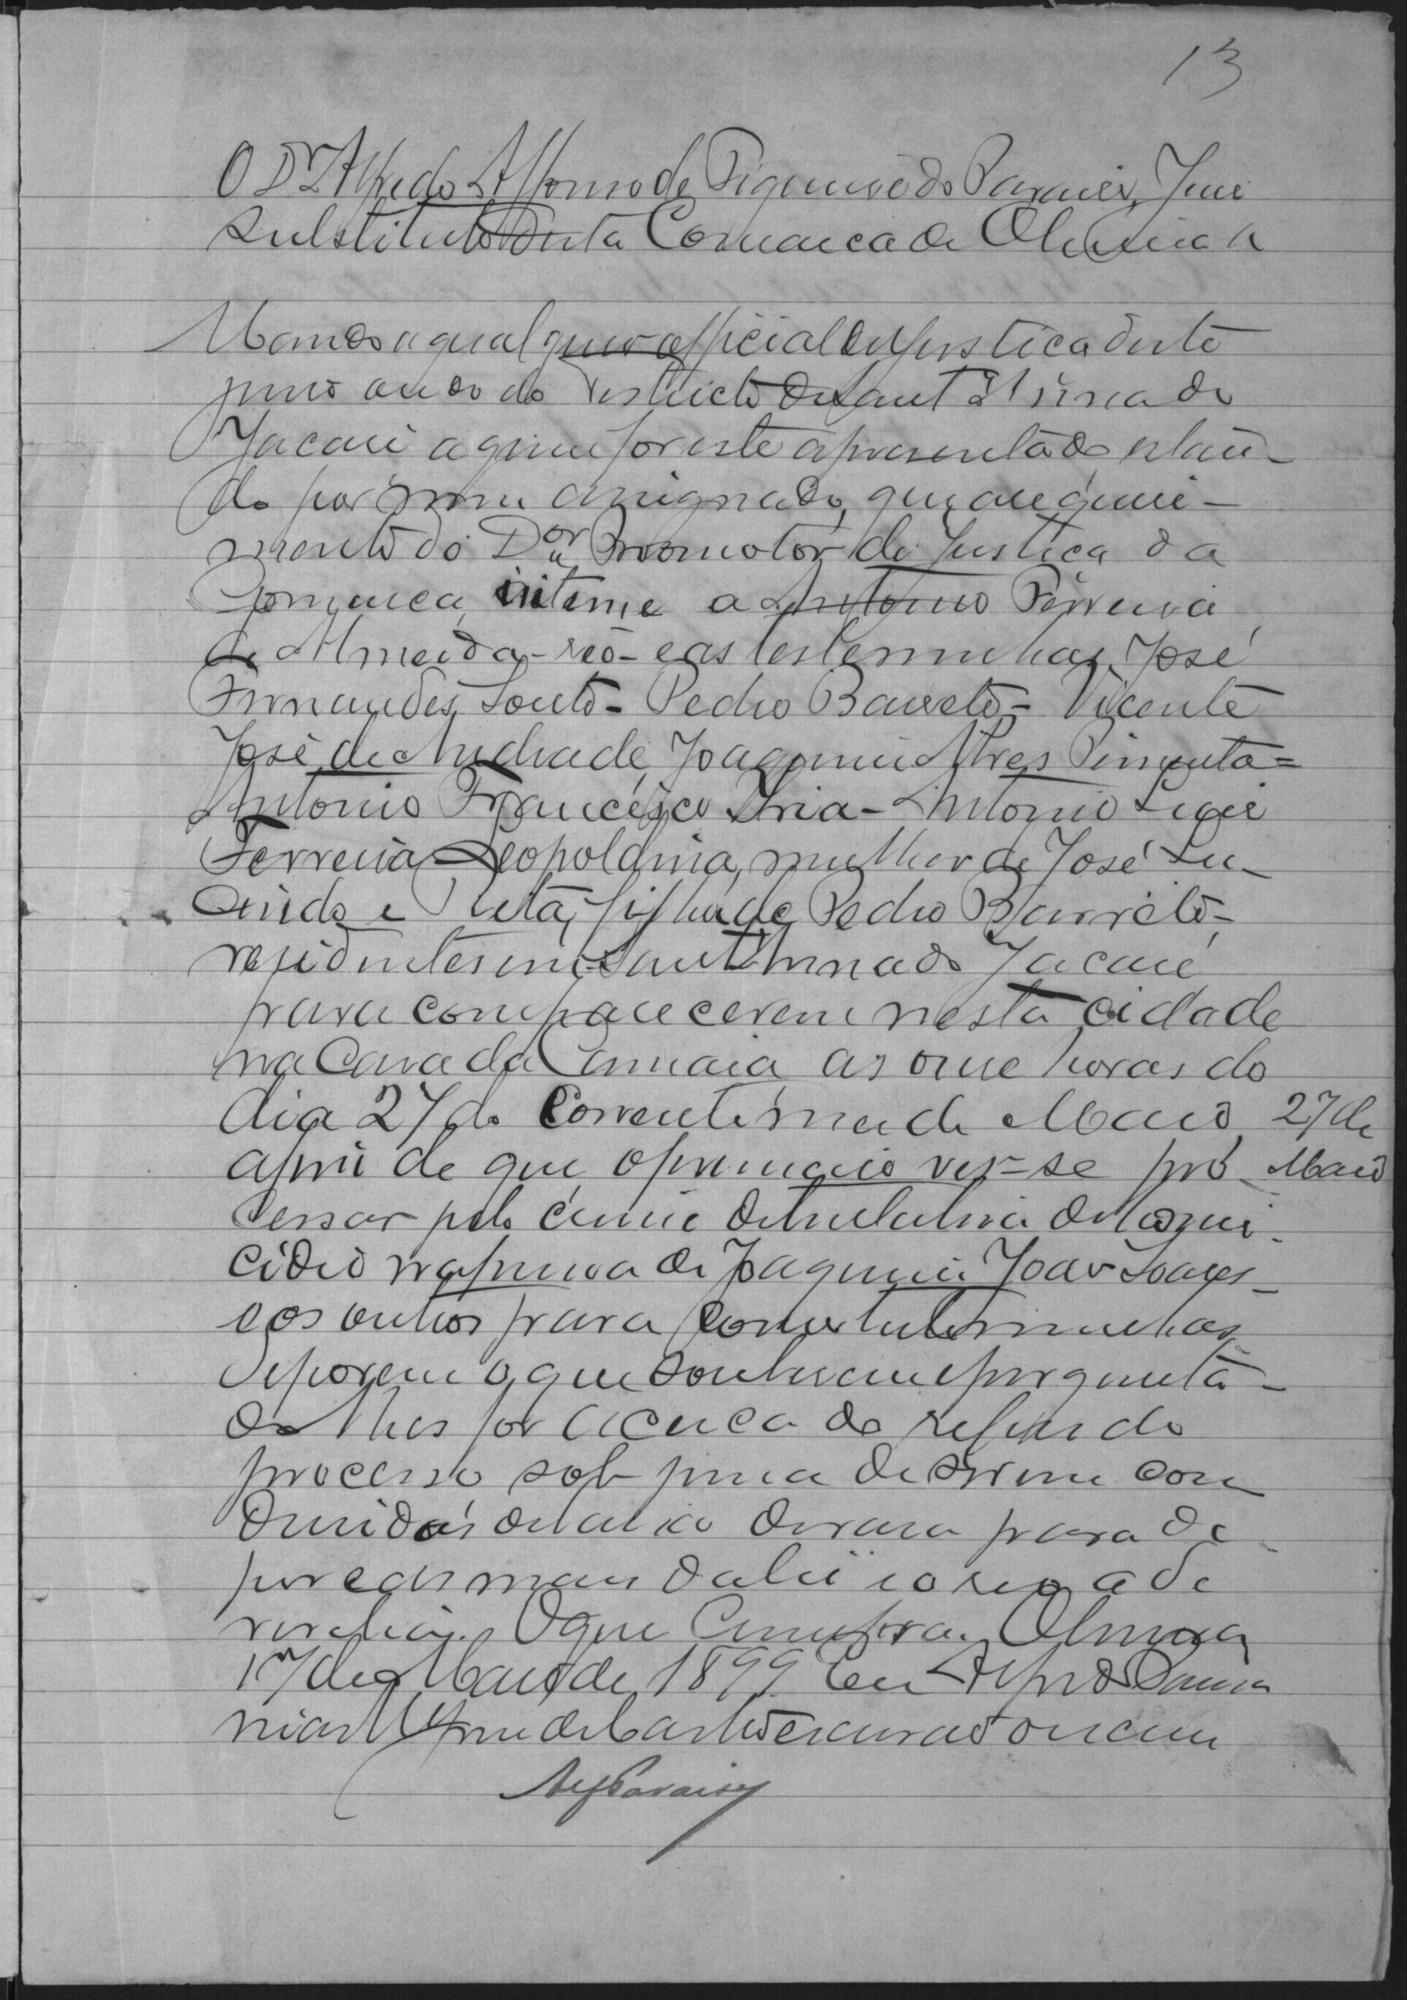 13
O Dr Alfredo Affonso de Figueiredo Paraiso, Juiz
substituto desta Comarca de Oliveira &
Mando a qualquer official de Justiça deste
juiso ou do do districto de Sant'Anna do
Jacaré a quem for este apresentado estan-
do por mim assignado, que a requeri-
mento do Dor Promotor de Justiça da
Comarca, intime a Antonio Ferreira
de Almeida - réo - e as testemunhas, José
Fernandes Souto - Pedro Barreto - Vicente
José de Andrade, Joaquim Alves Pimenta =
Antonio Francisco Iria - Antonio Luiz
Ferreira - Leopoldina, mulher de José Lu-
cindo e Rita, filha de Pedro Barreto -
residentes em Sant'Anna do Jacaré
para comparecerem nesta cidade
na Casa da Camara as onse horas do
dia 27 do corrente mes de Maio, 27 de
afim de que o primeiro ver-se pro- Maio
cessar pelo crime de tentativa de homi-
cidio na pessoa de Joaquim João Soares -
e os outros para como testemunhas
deporem o que souberem e pergunta-
do lhes for acerca do referido
processo sob pena de serem con
dusidos debaixo de vara para de
por e as mais da lei e o reo a de
revelia. O que cumpra. Oliveira
17 de Maio de 1899. Eu
de Castro escrivão o escrevi
AffParaiso